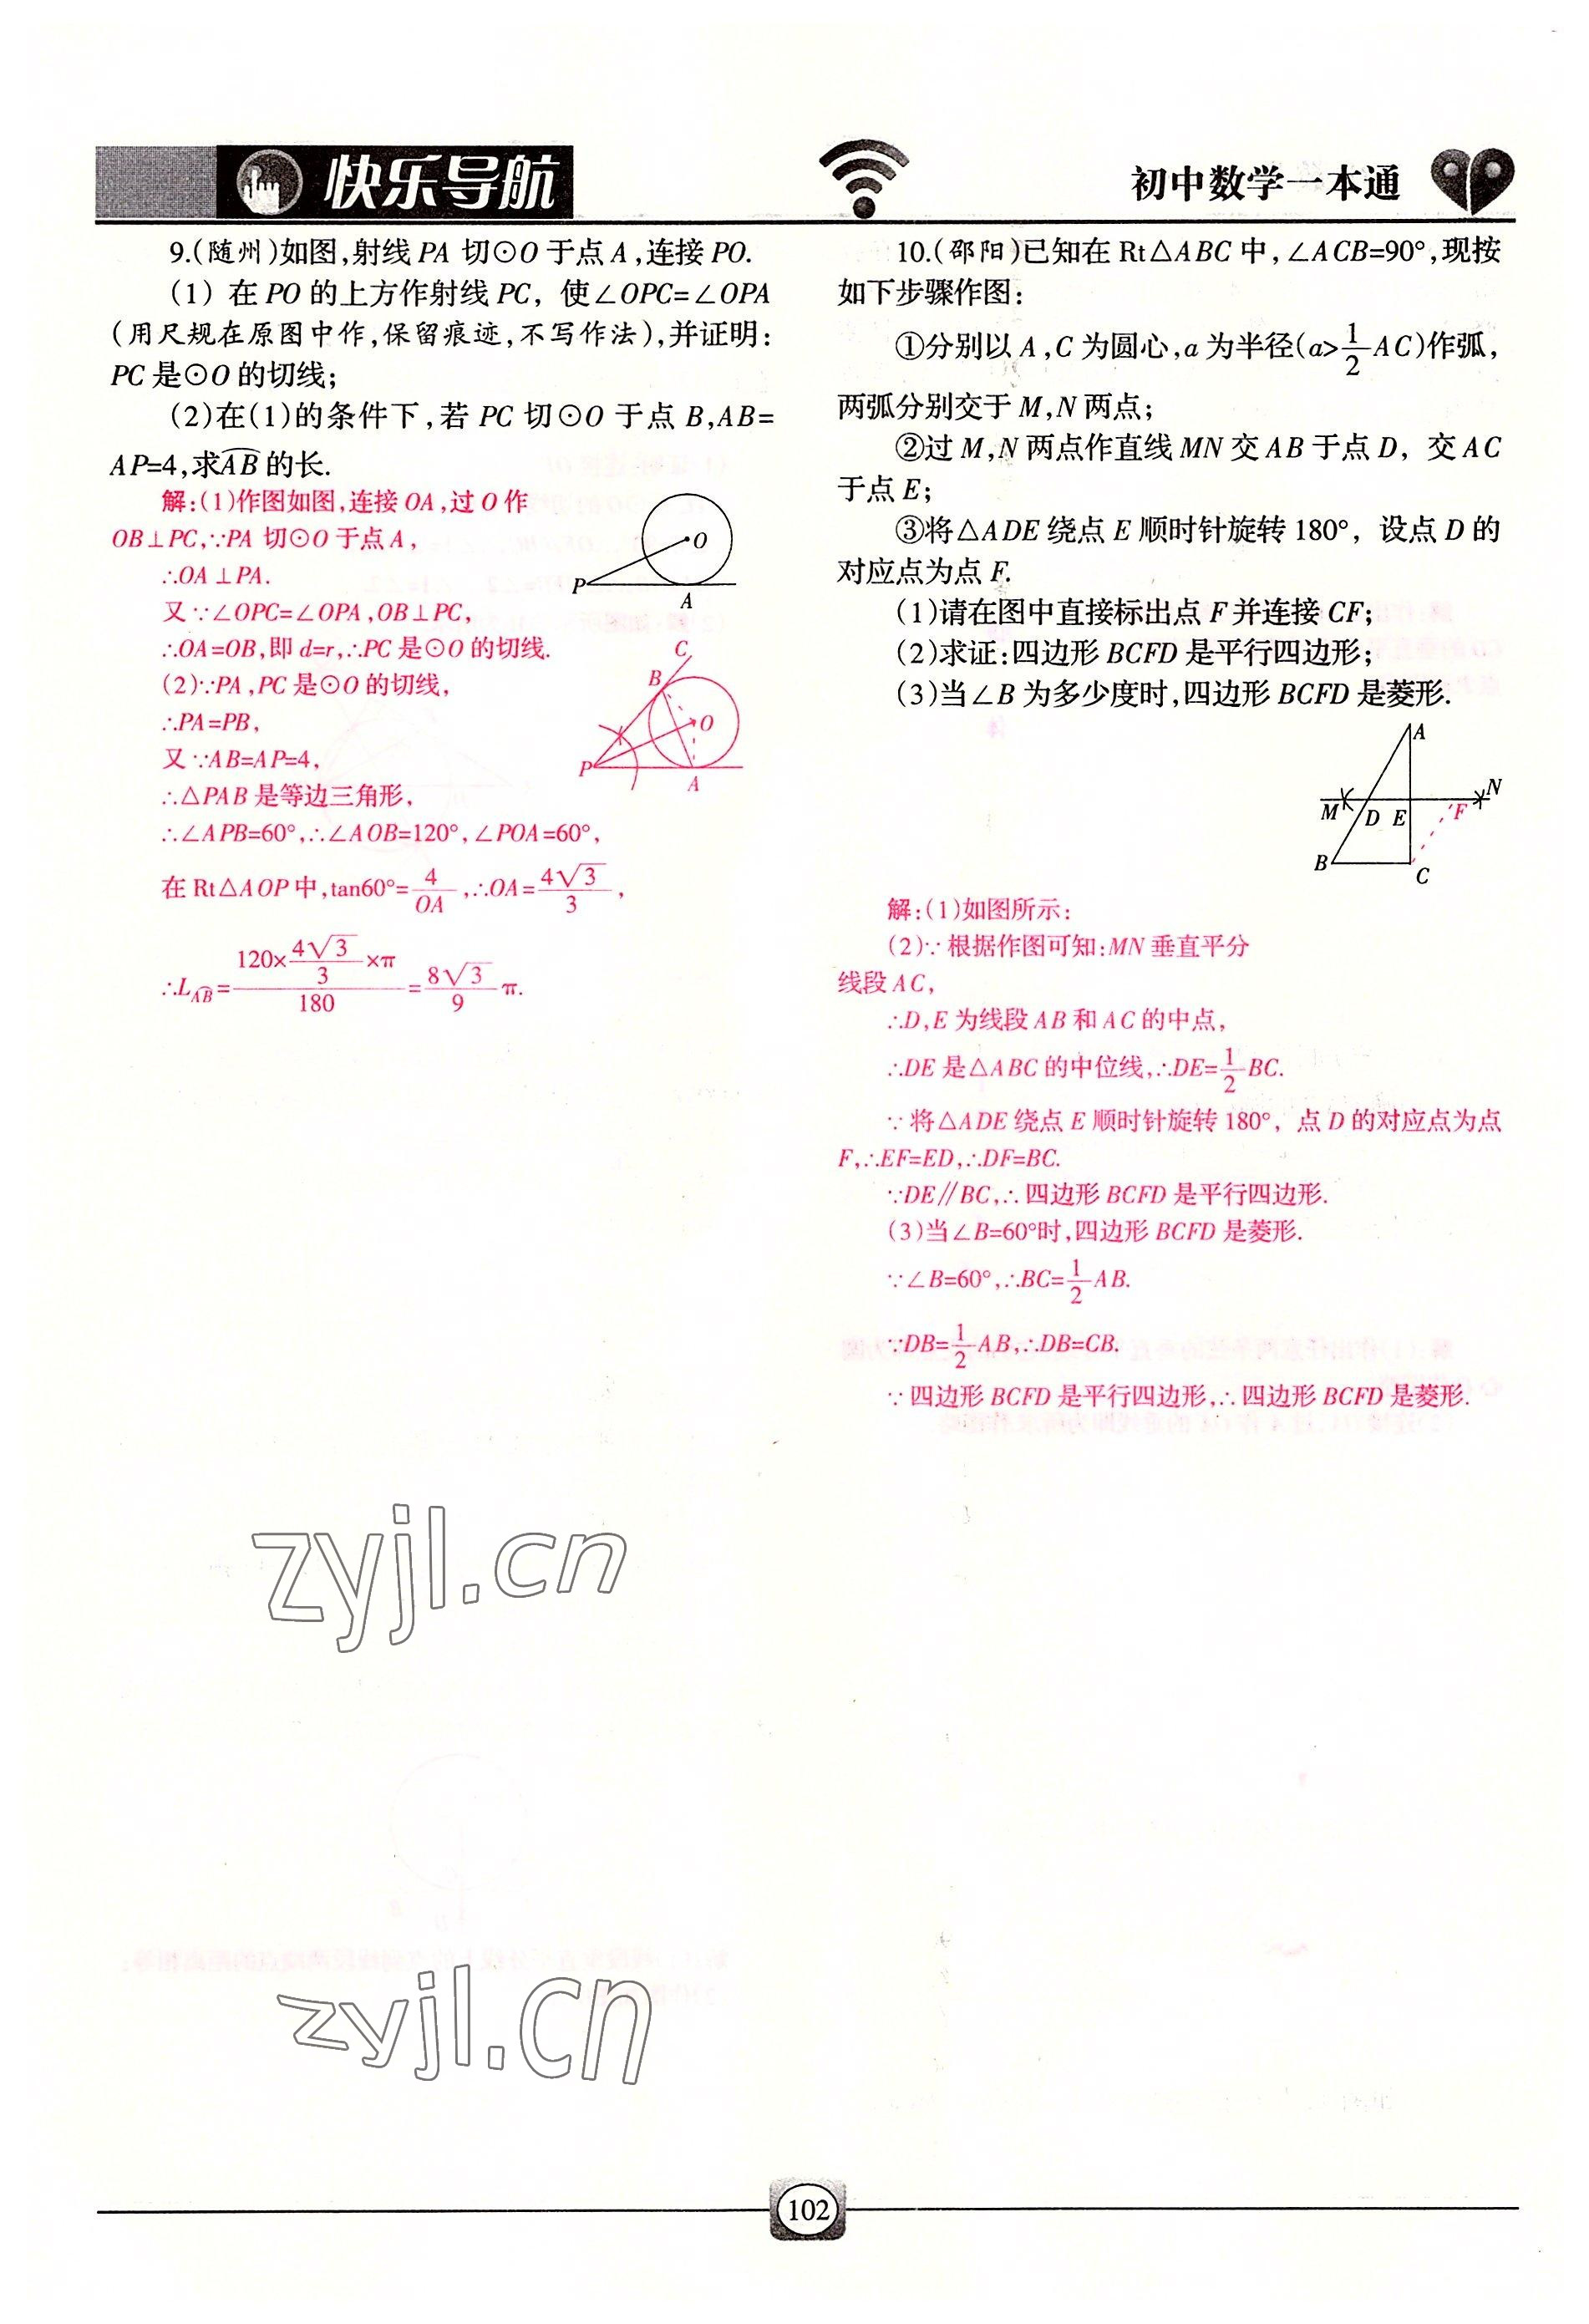 快乐导航
初中数学一本通
9.(随州)如图,射线PA 切⊙O 于点A,连接PO.
(1) 在PO 的上方作射线PC, 使∠OPC=∠OPA
(用尺规在原图中作,保留痕迹,不写作法),并证明:
PC是⊙O的切线;
(2)在(1)的条件下,若 PC 切⊙O 于点 B,AB=
AP=4,求AB⌒的长.
解:(1)作图如图,连接OA,过O作
OB⊥PC,∵PA 切⊙O于点A,
∴OA⊥PA.
又∵∠OPC=∠OPA,OB⊥PC,
∴OA=OB,即 d=r,∴PC是⊙O的切线.
(2)∵PA,PC是⊙O的切线,
∴PA=PB,
又∵AB=AP=4,
∴△PAB是等边三角形,
∴∠APB=60°,∴∠AOB=120°,∠POA=60°,
在Rt△AOP中,tan60°=4/OA,∴OA=4√3/3,
∴L_AB⌒=(120×4√3/3×π)/180=8√3/9 π.
O
P
A
C
B
O
P
A
10.(邵阳)已知在Rt△ABC中,∠ACB=90°,现按
如下步骤作图:
①分别以A,C为圆心,a为半径(a>1/2AC)作弧,
两弧分别交于M,N两点;
②过M,N两点作直线MN交AB于点D, 交AC
于点E;
③将△ADE绕点E顺时针旋转180°, 设点D的
对应点为点F.
(1)请在图中直接标出点F并连接CF;
(2)求证:四边形BCFD是平行四边形;
(3)当∠B为多少度时,四边形BCFD是菱形.
A
M D E F N
B
C
解:(1)如图所示:
(2)∵根据作图可知:MN垂直平分
线段AC,
∴D,E为线段AB和AC的中点,
∴DE是△ABC的中位线,∴DE=1/2BC.
∵将△ADE绕点E顺时针旋转180°, 点D的对应点为点
F,∴EF=ED,∴DF=BC.
∵DE∥BC,∴四边形BCFD是平行四边形.
(3)当∠B=60°时,四边形BCFD是菱形.
∵∠B=60°,∴BC=1/2AB.
∵DB=1/2AB,∴DB=CB.
∵四边形BCFD是平行四边形,∴四边形BCFD是菱形.
zyjl.cn
zyjl.cn
102